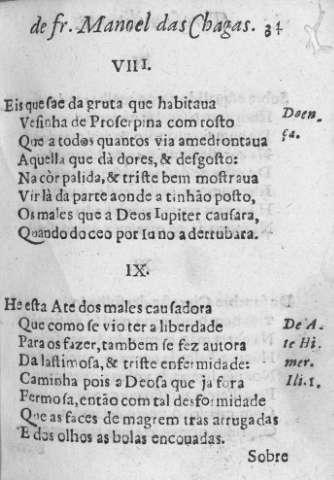 de fr. Manoel das Chagas. 34
VIII.
Eis que sae da gruta que habitaua
Vesinha de Proserpina com rosto
Que a todos quantos via amedrontaua
Aquella que dà dores, & desgosto:
Na còr palida, & triste bem mostraua
Vir là da parte aonde a tinhão posto,
Os males que a Deos Iupiter causara,
Quando do ceo por Iuno a derrubara.
Doen-
ça.
IX.
He esta Ate dos males causadora
Que como se vio ter a liberdade
Para os fazer, tambem se fez autora
Da lastimosa, & triste enfermidade:
Caminha pois a Deosa que ja fora
Fermosa, então com tal desformidade
Que as faces de magrem tras arrugadas
E dos olhos as bolas encouadas.
De A-
te Hi
mer.
Ili. 1.
Sobre